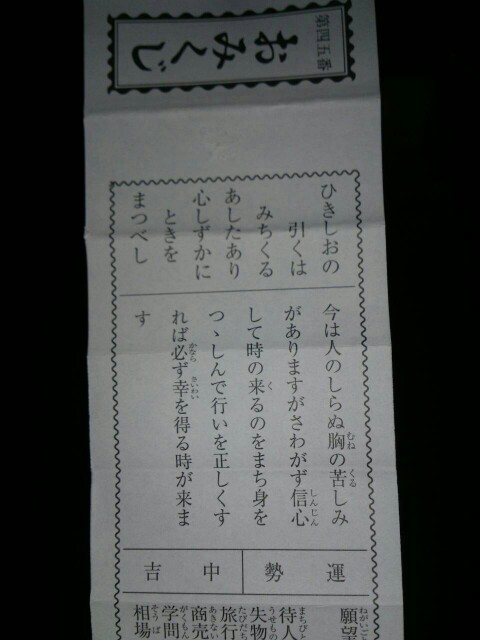 第四五番
おみくじ
ひきしおの
引くは
みちくる
あしたあり
心しずかに
ときを
まつべし
今は人のしらぬ胸の苦しみ
がありますがさわがず信心
して時の来るのをまち身を
つゝしんで行いを正しくす
れば必ず幸を得る時が来ま
す
運勢
中吉
願望
待人
失物
旅行
商売
学問
相場